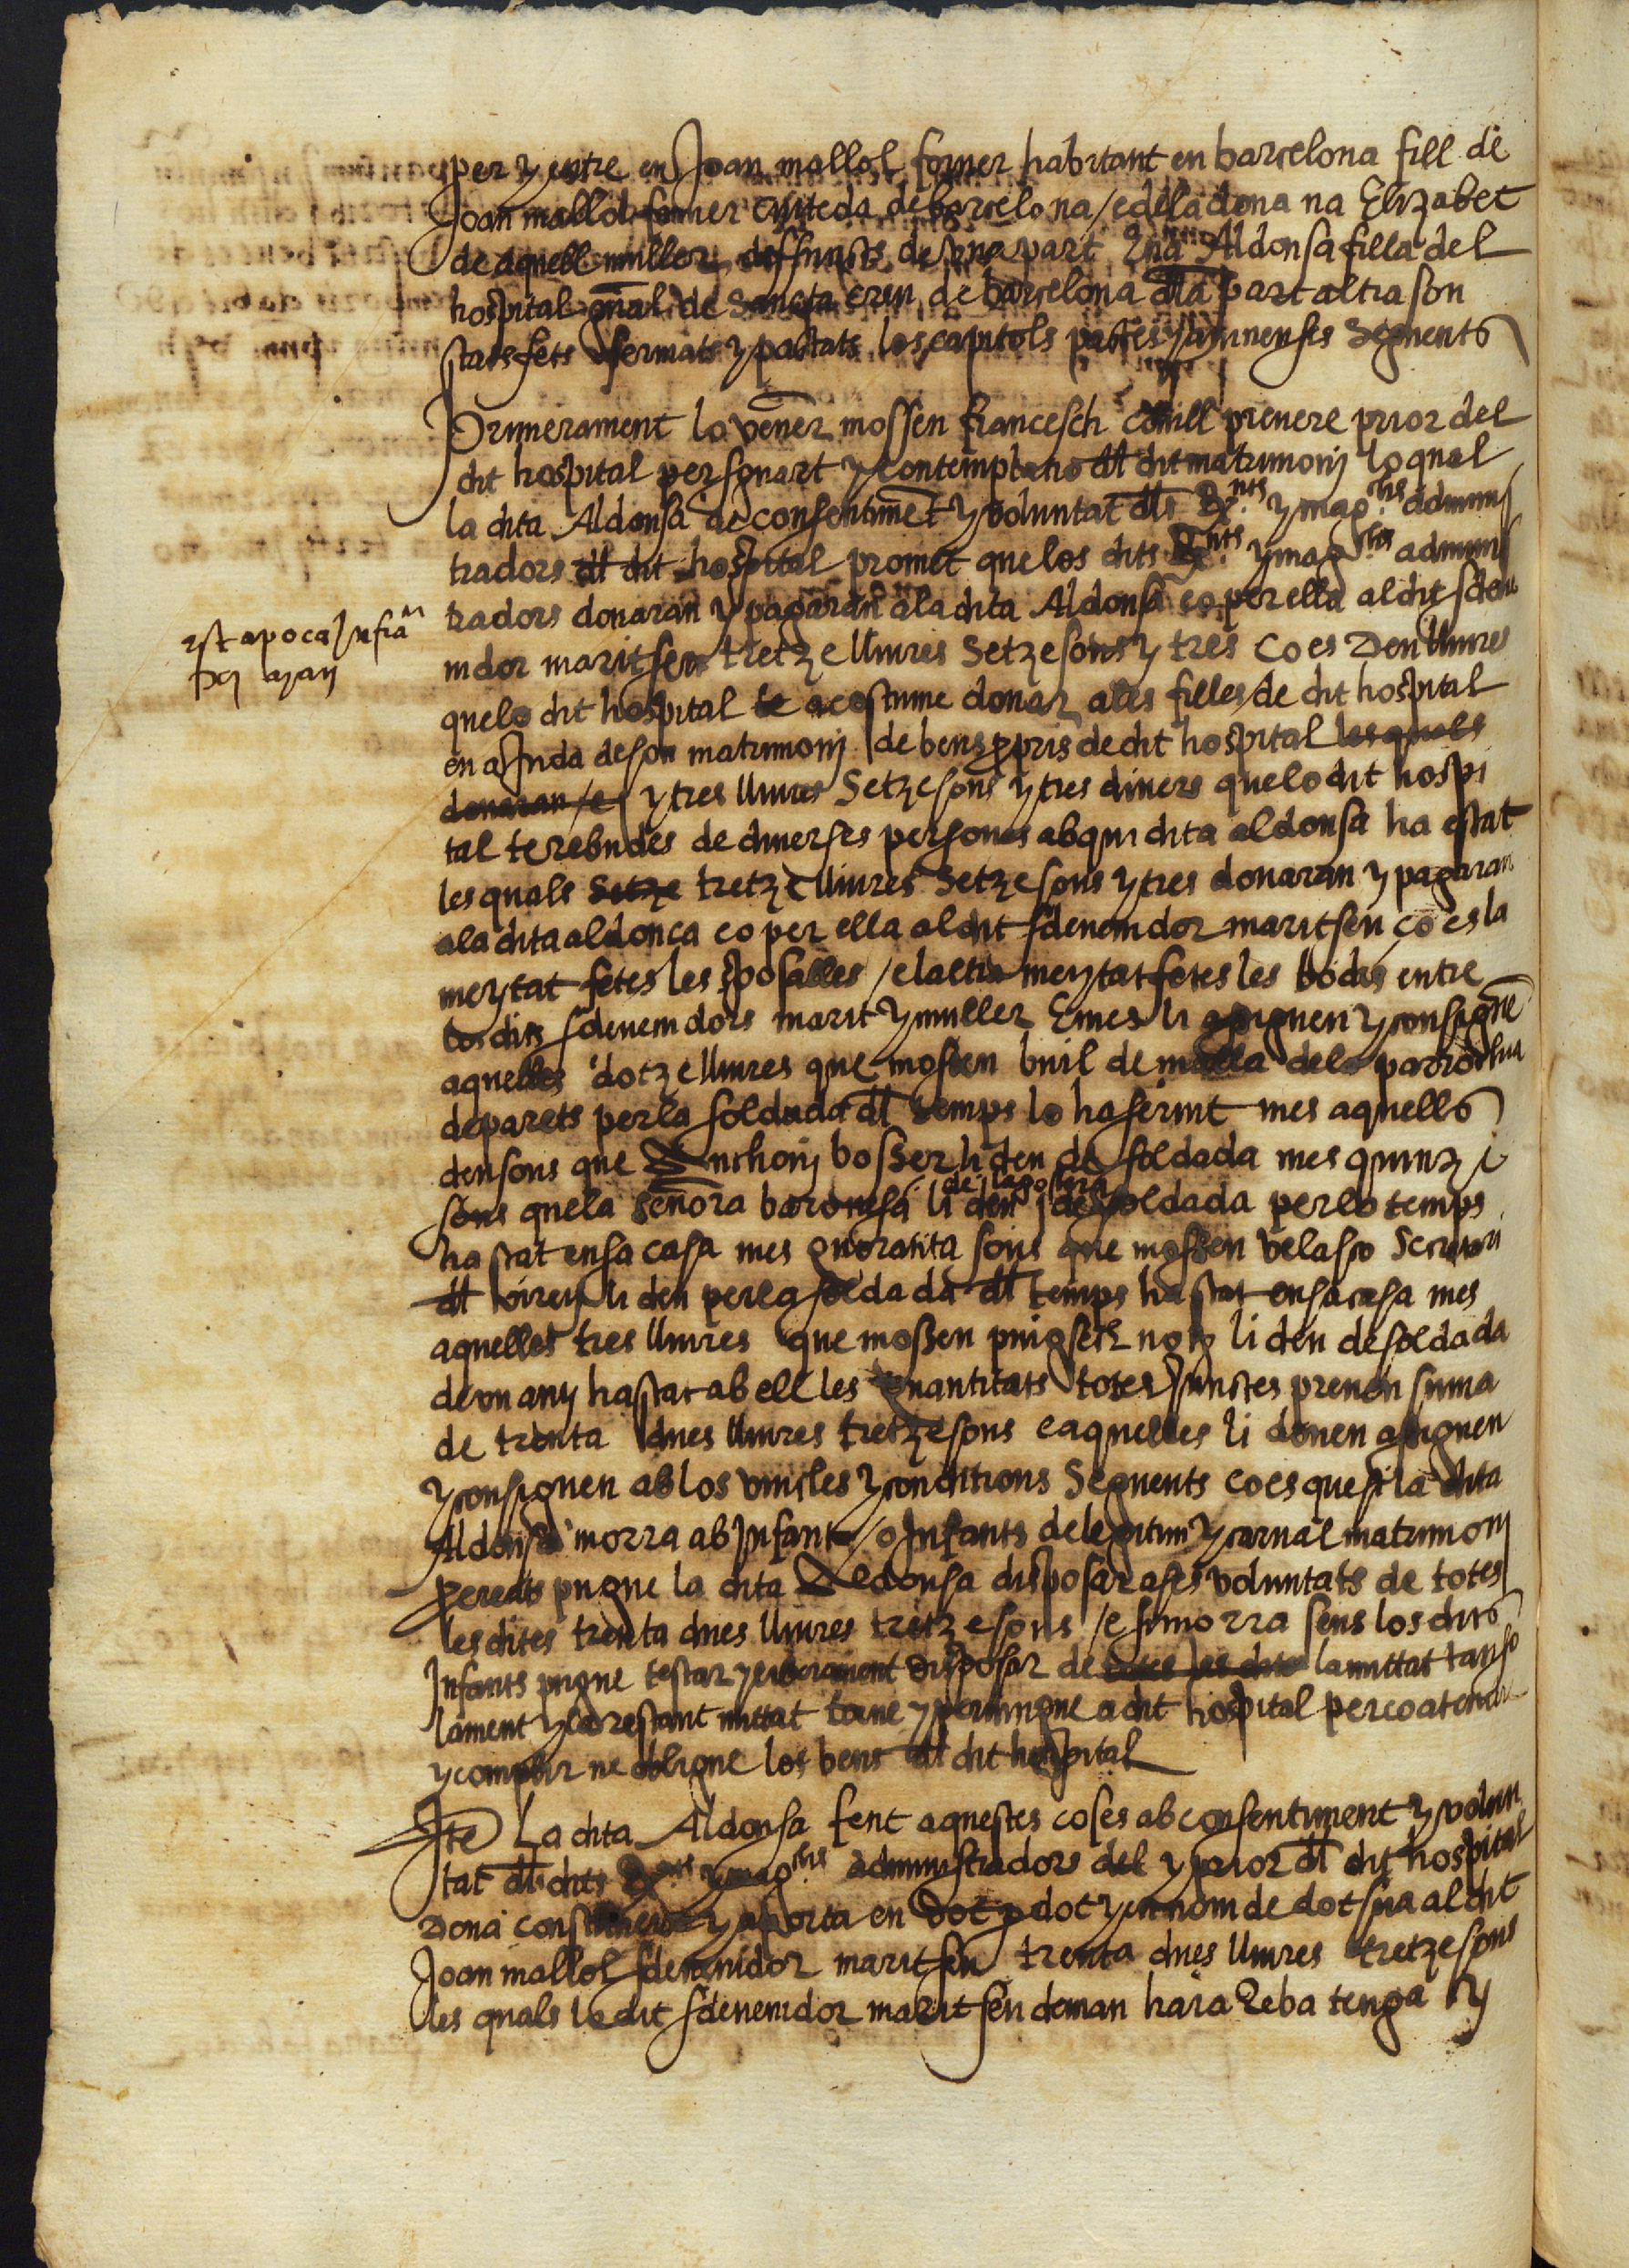 per y entre en Joan mallol forner habitant en barcelona fill de
Joan mallol forner de barcelona / e dela dona na Elizabet
de aquell muller deffuncts de una part E na Aldonsa filla del
hospital gñal de Sancta creu de barcelona dla part altra son
stats fets fermats y pactats los capitols pactes y avinenses Seguents
Primerament lo vener mossen francesch prevere prior del
dit hospital per son art y contemplatio dl dit matrimonj lo qual
la dita Aldonsa de consentimẽt y voluntat dls Rnts y magchs adminis
tradors dl dit hospital promet que los dits Rnts y magchs adminis
tradors donaran y pagaran ala dita Aldonsa e o per ella al dit sdeve
nidor marit seu tretze lliures Setze sous y tres Co es Deu lliures
que lo dit hospital te acostume donar ales filles de dit hospital
en ajuda de son matrimonj de bens propris de dit hospital les quals
donaran / e y tres lliures Setze sous y tres diners que lo dit hospi
tal te rebudes de diverses persones ab qui dita aldonsa ha estat
les quals Setze tretze lliures Setze sous y tres donaran y pagaran
ala dita aldonca e o per ella al dit sdevenidor marit seu ço es la
meytat fetes les sposalles / e laltra meytat fetes les bodes entre
los dits sdevenidors marit y muller E mes li assignen y consignẽ
aquelles dotze lliures que mossen buil de malla dela parrochia
de parets per la soldada dl temps lo ha servit mes aquells
deu sous que Anthonj bosser li deu de soldada mes quinze
sous que la señora baronesa de llagostera li deu de soldada per lo temps
ha stat en sa casa mes quoratita sous que mossen velasco Scrivan
dl virey li deu per la soldada dl temps ha stat en sa casa mes
aquelles tres lliures que mossen puigsech noz li deu de soldada
de un any ha stat ab ell les quantitats totes junctes prenen suma
de trenta dues lliures tretze sous e aquelles li donen assignen
y consignen ab los vincles y conditions Seguents co es que si la dita
Aldonsa morra ab Infant / o Infants de legitim y carnal matrimonj
pereats pugue la dita Aldonsa disposar ases voluntats de totes
les dites trenta dues lliures tretze sous / e si morra sens los dits
Infants pugue testar y liberament disposar de totes les dites la mittat tan so
lament y la restant mittat torne y pervingue a dit hospital per co atendre
y complir ne obligue los bens dl dit hospital
Itẽ La dita Aldonsa fent aquestes coses ab consentiment y volun
tat dls dits Rnts y magchs administradors del y prior dl dit hospital
Dona constitueix y aporta en dot p dot y en nom de dot sua al dit
Joan mallol sdevenidor marit seu trenta dues lliures tretze sous
les quals lo dit sdevenidor marit seu deman haia Reba tenga y
est apoca Infra